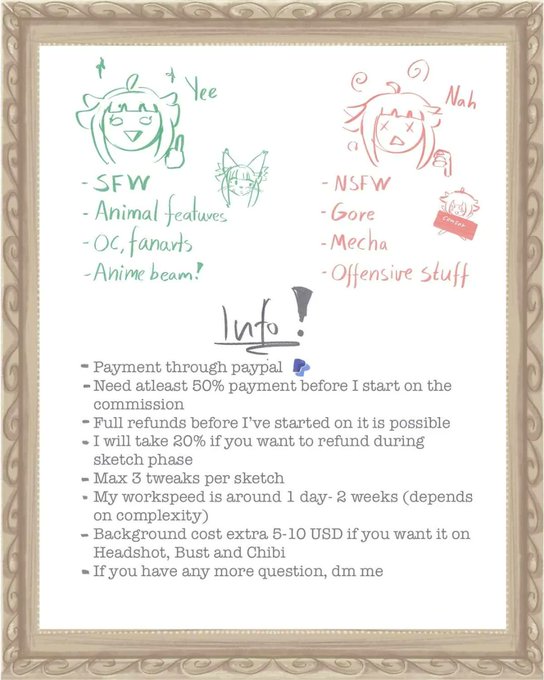 Yee
- SFW
- Animal features
- OC, fanarts
- Anime beam!
Nah
- NSFW
- Gore
- Mecha
- Offensive stuff
censor
Info!
- Payment through paypal
- Need atleast 50% payment before I start on the
commission
- Full refunds before I've started on it is possible
- I will take 20% if you want to refund during
sketch phase
- Max 3 tweaks per sketch
- My workspeed is around 1 day- 2 weeks (depends
on complexity)
- Background cost extra 5-10 USD if you want it on
Headshot, Bust and Chibi
- If you have any more question, dm me